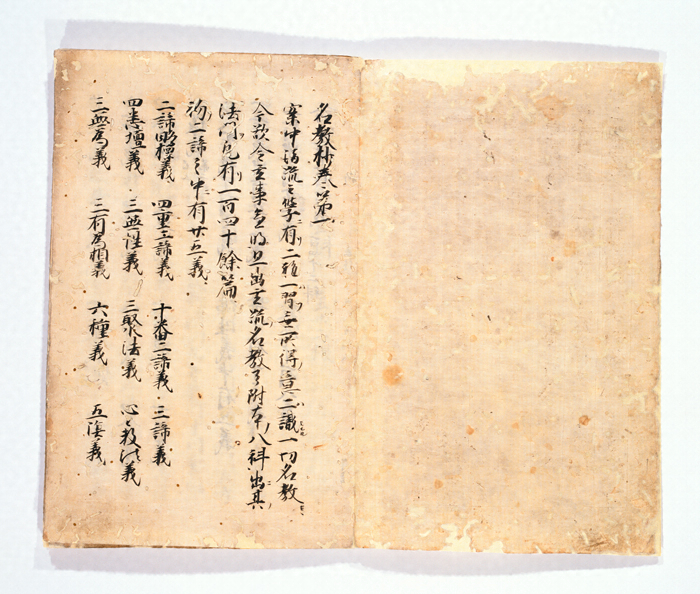 名教抄巻第一
案中諸流之學有二種一習無所得意二識一切名教
今欲令玄事無明且出玄疏名教了附在八科出其
法門凡有一百四十餘篇
初二諦之中有廿五義
二諦略標義 四重二諦義 十番二諦義 三諦義
四悉檀義 三無性義 三聚法義 心意識義
三無為義 三有為相義 六種義 五陰義